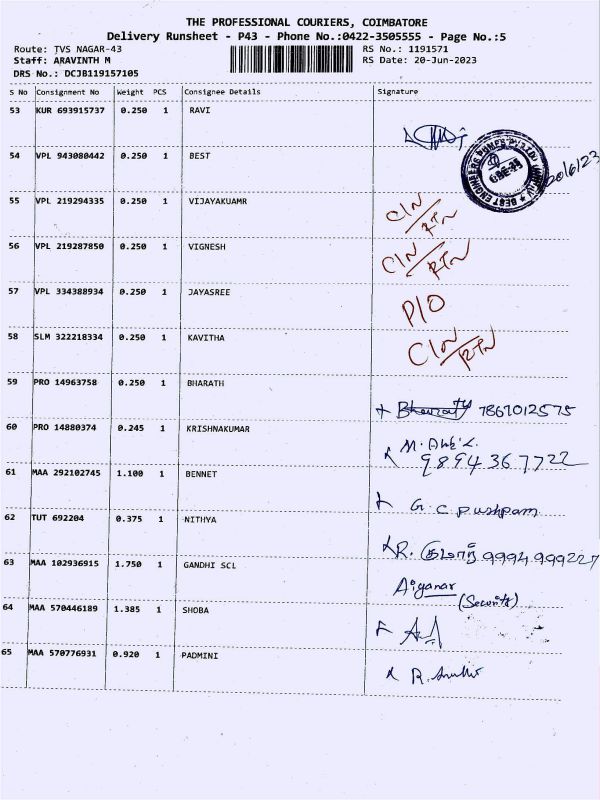 THE PROFESSIONAL COURIERS, COIMBATORE
Delivery Runsheet - P43 - Phone No.:0422-3505555 - Page No.:5
Route: TVS NAGAR-43 RS No.: 1191571
Staff: ARAVINTH M RS Date: 20-Jun-2023
DRS No.: DCJB119157105
S No Consignment No Weight PCS Consignee Details Signature
53 KUR 693915737 0.250 1 RAVI
54 VPL 943080442 0.250 1 BEST 20/6/23
55 VPL 219294335 0.250 1 VIJAYAKUAMR C/N RTN
56 VPL 219287850 0.250 1 VIGNESH C/N RTN
57 VPL 334388934 0.250 1 JAYASREE P/O
58 SLM 322218334 0.250 1 KAVITHA C/N RTN
59 PRO 14963758 0.250 1 BHARATH
Bharath 7867012575
60 PRO 14880374 0.245 1 KRISHNAKUMAR
9894367722
61 MAA 292102745 1.100 1 BENNET
G. C. Pushpam
62 TUT 692204 0.375 1 NITHYA
R. குமார் 9994999227
63 MAA 102936915 1.750 1 GANDHI SCL
Aiganar
(Security)
64 MAA 570446189 1.385 1 SHOBA
65 MAA 570776931 0.920 1 PADMINI